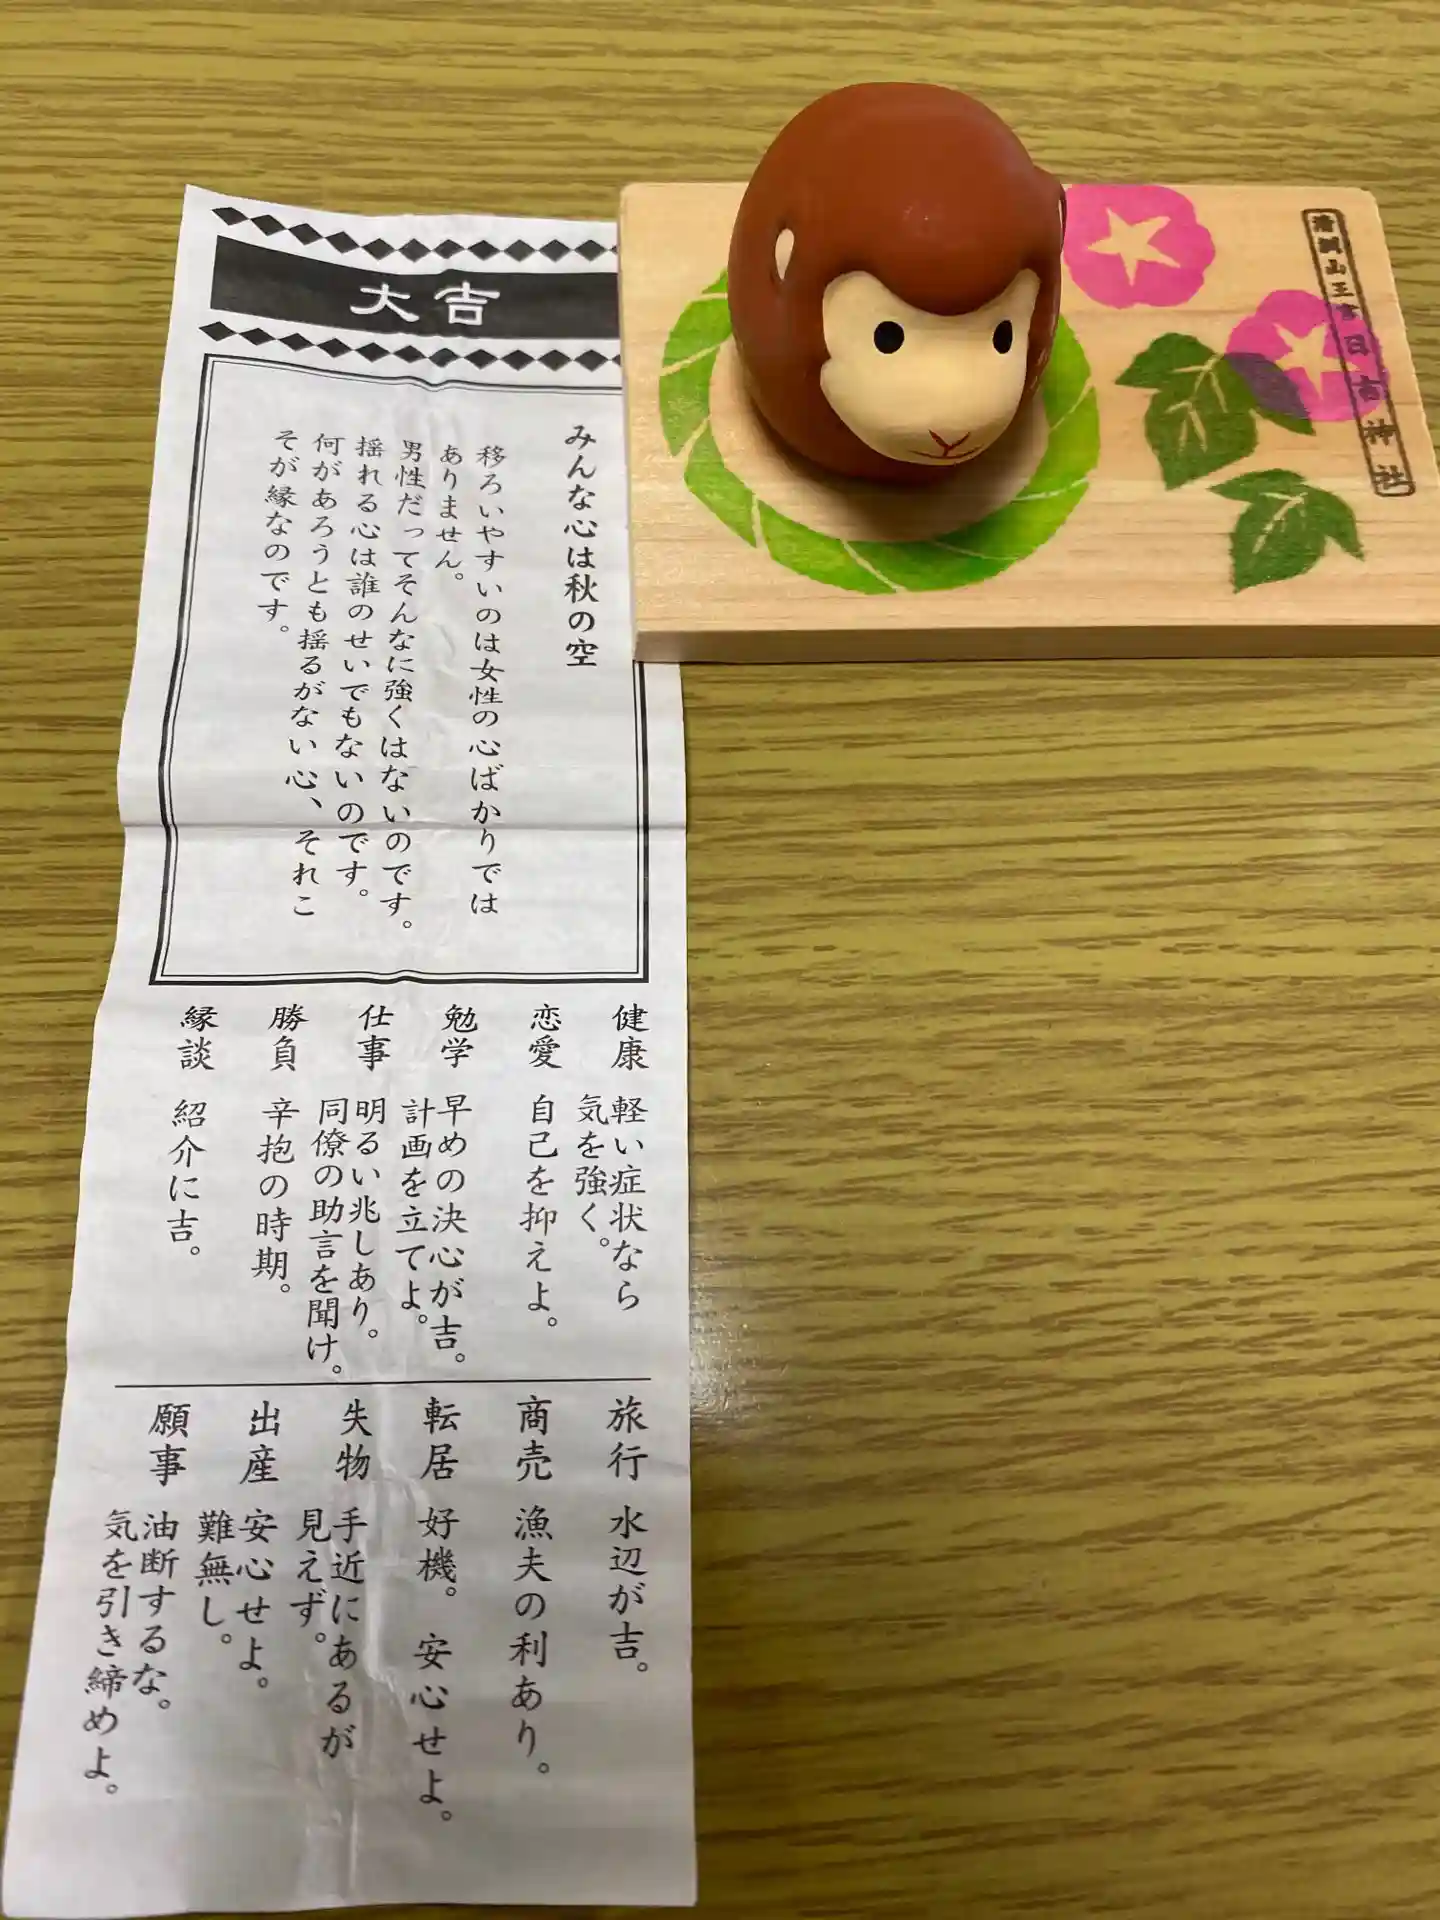 大吉
みんな心は秋の空
移ろいやすいのは女性の心ばかりでは
ありません。
男性だってそんなに強くはないのです。
揺れる心は誰のせいでもないのです。
何があろうとも揺るがない心、それこ
そが縁なのです。
健康 軽い症状なら
気を強く。
恋愛 自己を抑えよ。
勉学 早めの決心が吉。
計画を立てよ。
仕事 明るい兆しあり。
同僚の助言を聞け。
勝負 辛抱の時期。
縁談 紹介に吉。
旅行 水辺が吉。
商売 漁夫の利あり。
転居 好機。 安心せよ。
失物 手近にあるが
見えず。
出産 安心せよ。
難無し。
願事 油断するな。
気を引き締めよ。
清洲山王宮日吉神社